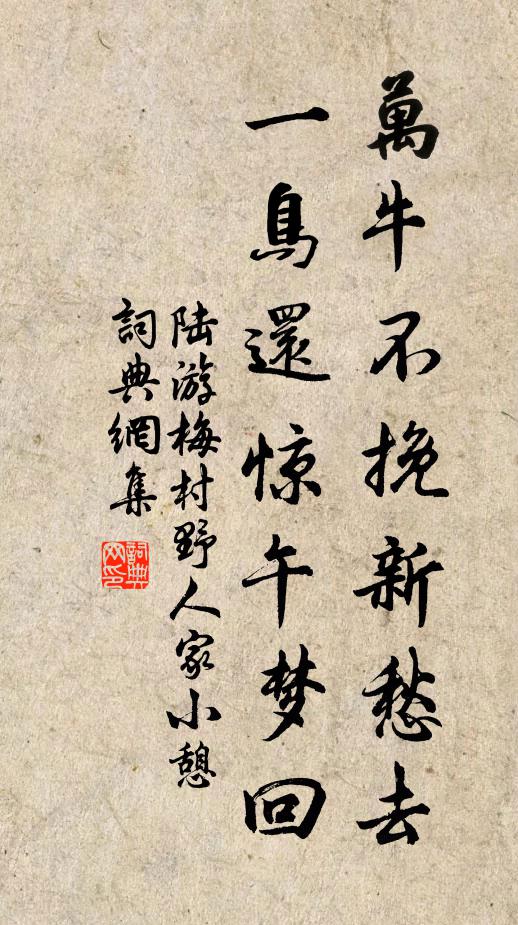 萬牛不挽新愁去
一鳥還惊午梦回
陆游梅村野人家小憩
詞典網集
詞典網印